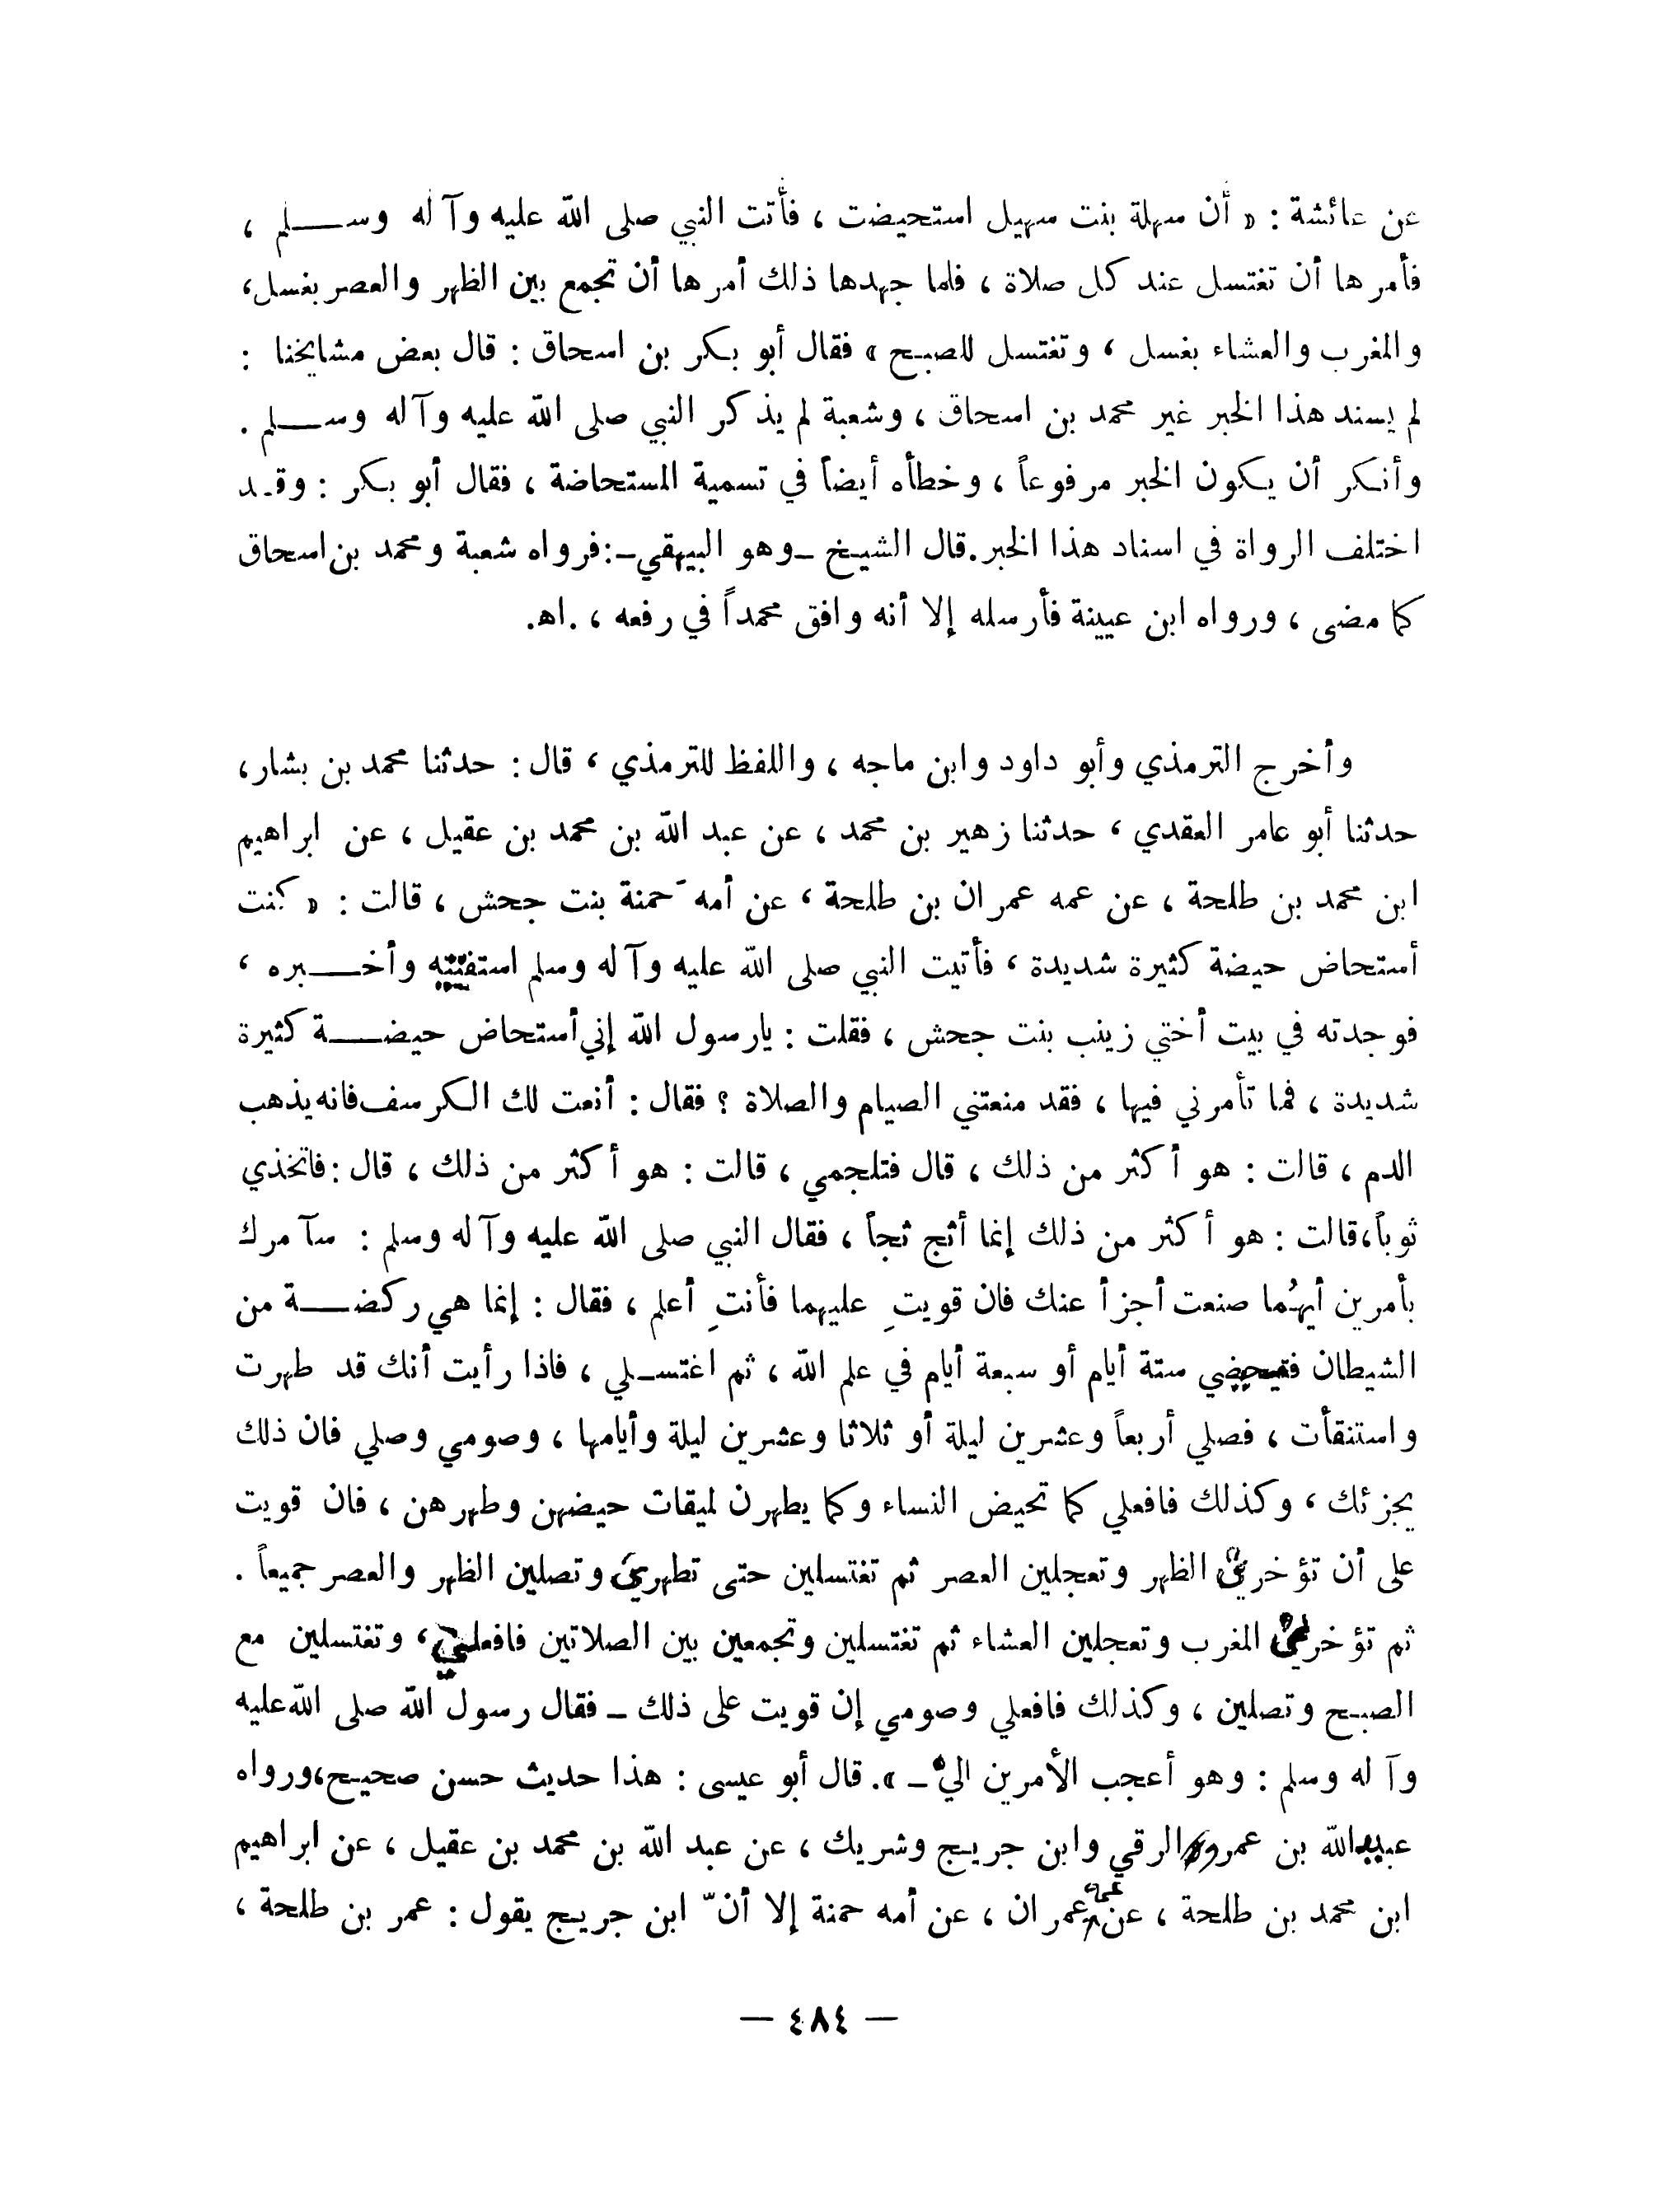 عن عائشة : « أن سهلة بنت سهيل استحيضت ، فأتت النبي صلى الله عليه وآله وسلم ،
فأمرها أن تغتسل عند كل صلاة ، فلما جهدها ذلك أمرها أن تجمع بين الظهر والعصر بغسل،
والمغرب والعشاء بغسل ، وتغتسل للصبح » فقال أبو بكر بن اسحاق : قال بعض مشايخنا :
لم يسند هذا الخبر غير محمد بن اسحاق ، وشعبة لم يذكر النبي صلى الله عليه وآله وسلم .
وأنكر أن يكون الخبر مرفوعاً ، وخطأه أيضاً في تسمية المستحاضة ، فقال أبو بكر : وقد
اختلف الرواة في اسناد هذا الخبر . قال الشيخ ـ وهو البيهقي ـ : فرواه شعبة ومحمد بن اسحاق
كما مضى ، ورواه ابن عيينة فأرسله إلا أنه وافق محمداً في رفعه ، . اهـ .
وأخرج الترمذي وأبو داود وابن ماجه ، واللفظ للترمذي ، قال : حدثنا محمد بن بشار،
حدثنا أبو عامر العقدي ، حدثنا زهير بن محمد ، عن عبد الله بن محمد بن عقيل ، عن ابراهيم
ابن محمد بن طلحة ، عن عمه عمران بن طلحة ، عن أمه حَمنة بنت جحش ، قالت : « كنت
أستحاض حيضة كثيرة شديدة ، فأتيت النبي صلى الله عليه وآله وسلم استفتيه وأخبره ،
فوجدته في بيت أختي زينب بنت جحش ، فقلت : يارسول الله إني أستحاض حيضة كثيرة
شديدة ، فما تأمرني فيها ، فقد منعتني الصيام والصلاة ؟ فقال : أنعت لك الكرسف فانه يذهب
الدم ، قالت : هو أكثر من ذلك ، قال فتلجمي ، قالت : هو أكثر من ذلك ، قال : فاتخذي
ثوباً، قالت : هو أكثر من ذلك إنما أثج ثجاً ، فقال النبي صلى الله عليه وآله وسلم : سآمرك
بأمرين أيهُما صنعت أجزأ عنك فان قويتِ عليهما فأنتِ أعلم ، فقال : إنما هي ركضة من
الشيطان فتحيضي ستة أيام أو سبعة أيام في علم الله ، ثم اغتسلي ، فاذا رأيت أنك قد طهرت
واستنقأت ، فصلي أربعاً وعشرين ليلة أو ثلاثا وعشرين ليلة وأيامها ، وصومي وصلي فان ذلك
يجزئك ، وكذلك فافعلي كما تحيض النساء وكما يطهرن لميقات حيضهن وطهرهن ، فان قويت
على أن تؤخري الظهر وتعجلين العصر ثم تغتسلين حتى تطهرين وتصلين الظهر والعصر جميعاً .
ثم تؤخرين المغرب وتعجلين العشاء ثم تغتسلين وتجمعين بين الصلاتين فافعلي ، وتغتسلين مع
الصبح وتصلين ، وكذلك فافعلي وصومي إن قويت على ذلك ـ فقال رسول الله صلى الله عليه
وآله وسلم : وهو أعجب الأمرين الي ـ » . قال أبو عيسى : هذا حديث حسن صحيح، ورواه
عبيد الله بن عمرو الرقي وابن جريج وشريك ، عن عبد الله بن محمد بن عقيل ، عن ابراهيم
ابن محمد بن طلحة ، عن عمه عمران ، عن أمه حمنة إلا أنّ ابن جريج يقول : عمر بن طلحة ،
— ٤٨٤ —